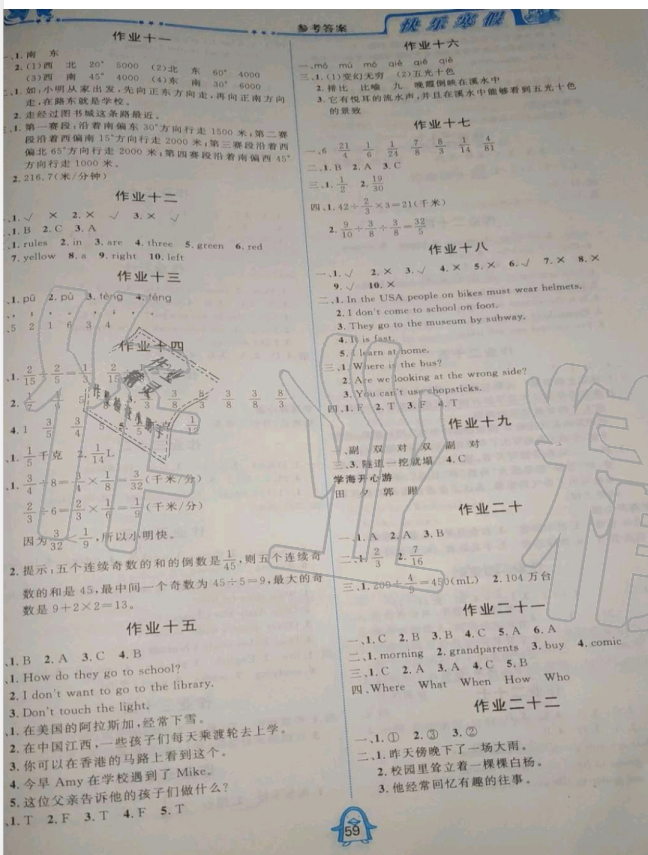 参考答案
快乐寒假
作业十一
一、1.南 东
2.(1)西 北 20° 5000 (2)北 东 60° 4000
(3)西 南 45° 4000 (4)东 南 30° 6000
二、1.如:小明从家出发,先向正东方向走,再向正南方向
走,在路东就是学校。
2.走经过图书城这条路最近。
三、1.第一赛段:沿着南偏东30°方向行走1500米;第二赛
段沿着西偏南15°方向行走2000米;第三赛段沿着西
偏北65°方向行走2000米;第四赛段沿着南偏西45°
方向行走1000米。
2.216.7(米/分钟)
作业十二
1.√ × 2.× √ 3.× √
1.B 2.C 3.A
1.rules 2.in 3.are 4.three 5.green 6.red
7.yellow 8.a 9.right 10.left
作业十三
1.pū 2.pù 3.téng 4.téng
5 2 1 6 3 4
作业十四
1. 2/15 ÷ 2/5 = 1/3
4.1 3/5 3/4
1. 1/5千克 2. 1/14 L
1. 3/4÷8=3/4×1/8=3/32(千米/分)
2/3÷6=2/3×1/6=1/9(千米/分)
因为3/32<1/9,所以小明快。
2.提示:五个连续奇数的和的倒数是1/45,则五个连续奇
数的和是45,最中间一个奇数为45÷5=9,最大的奇
数是9+2×2=13。
作业十五
1.B 2.A 3.C 4.B
1.How do they go to school?
2.I don't want to go to the library.
3.Don't touch the light.
1.在美国的阿拉斯加,经常下雪。
2.在中国江西,一些孩子们每天乘渡轮去上学。
3.你可以在香港的马路上看到这个。
4.今早Amy在学校遇到了Mike。
5.这位父亲告诉他的孩子们做什么?
1.T 2.F 3.T 4.F 5.T
作业十六
一、mó mú mó qiè qiē qiè
三、1.(1)变幻无穷 (2)五光十色
2.排比 比喻 九 晚霞倒映在溪水中
3.它有悦耳的流水声,并且在溪水中能够看到五光十色
的景致
作业十七
一、6 21/4 1/6 1/24 7/8 8/3 1/14 4/81
二、1.B 2.A 3.C
三、1. 1/2 2. 19/30
四、1.42÷2/3×3=21(千米)
2. 9/10÷3/8÷3/8=32/5
作业十八
一、1.√ 2.× 3.√ 4.× 5.× 6.√ 7.× 8.×
9.√ 10.×
二、1.In the USA people on bikes must wear helmets.
2.I don't come to school on foot.
3.They go to the museum by subway.
4.It is fast.
5.I learn at home.
三、1.Where is the bus?
2.Are we looking at the wrong side?
3.You can't use chopsticks.
四、1.F 2.T 3.F 4.T
作业十九
一、副 双 对 双 副 对
三、3.隧道一挖就塌 4.C
学海开心游
田 夕 郭 跟
作业二十
一、1.A 2.A 3.B
二、1. 2/3 2. 7/16
三、1.200÷4/9=450(mL) 2.104万台
作业二十一
一、1.C 2.B 3.B 4.C 5.A 6.A
二、1.morning 2.grandparents 3.buy 4.comic
三、1.C 2.A 3.A 4.C 5.B
四、Where What When How Who
作业二十二
一、1.① 2.③ 3.②
二、1.昨天傍晚下了一场大雨。
2.校园里耸立着一棵棵白杨。
3.他经常回忆有趣的往事。
59
作业精